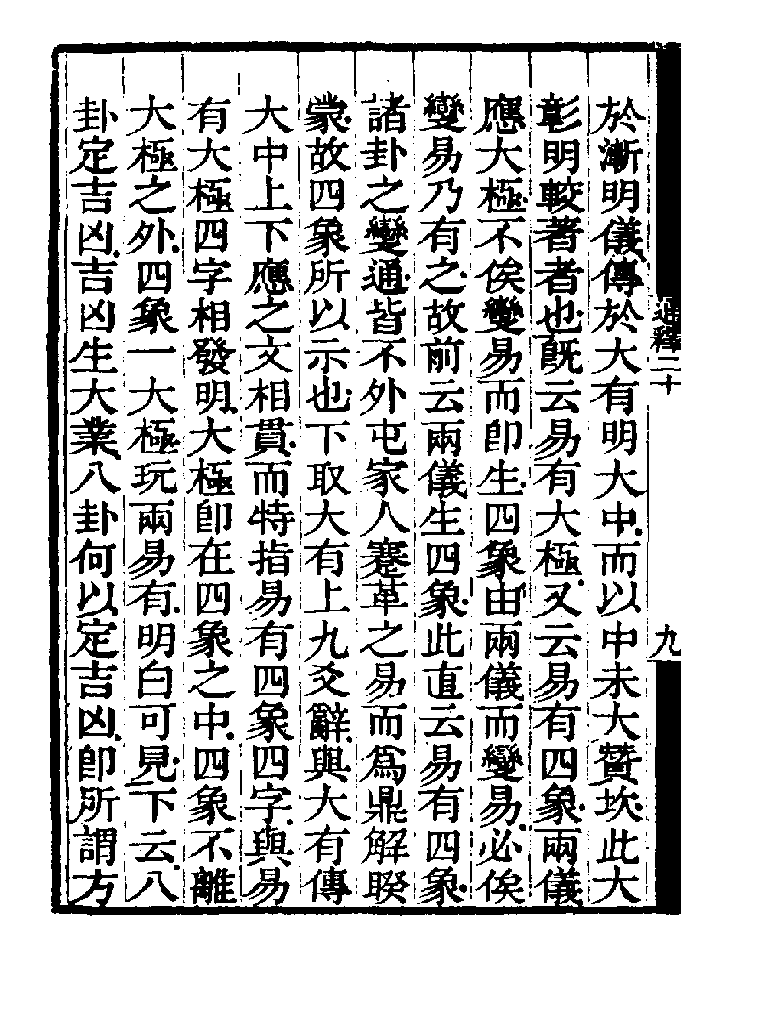 通釋二十
九
於漸明儀傳於大有明大中而以中未大贊坎此大
彰明較著者也既云易有大極又云易有四象兩儀
應大極不俟變易而卽生四象由兩儀而變易必俟
變易乃有之故前云兩儀生四象此直云易有四象
諸卦之變通皆不外屯家人蹇革之易而爲鼎解睽
蒙故四象所以示也下取大有上九爻辭與大有傳
大中上下應之文相貫而特指易有四象四字與易
有大極四字相發明大極卽在四象之中四象不離
大極之外四象一大極玩兩易有明白可見下云八
卦定吉凶吉凶生大業八卦何以定吉凶卽所謂方